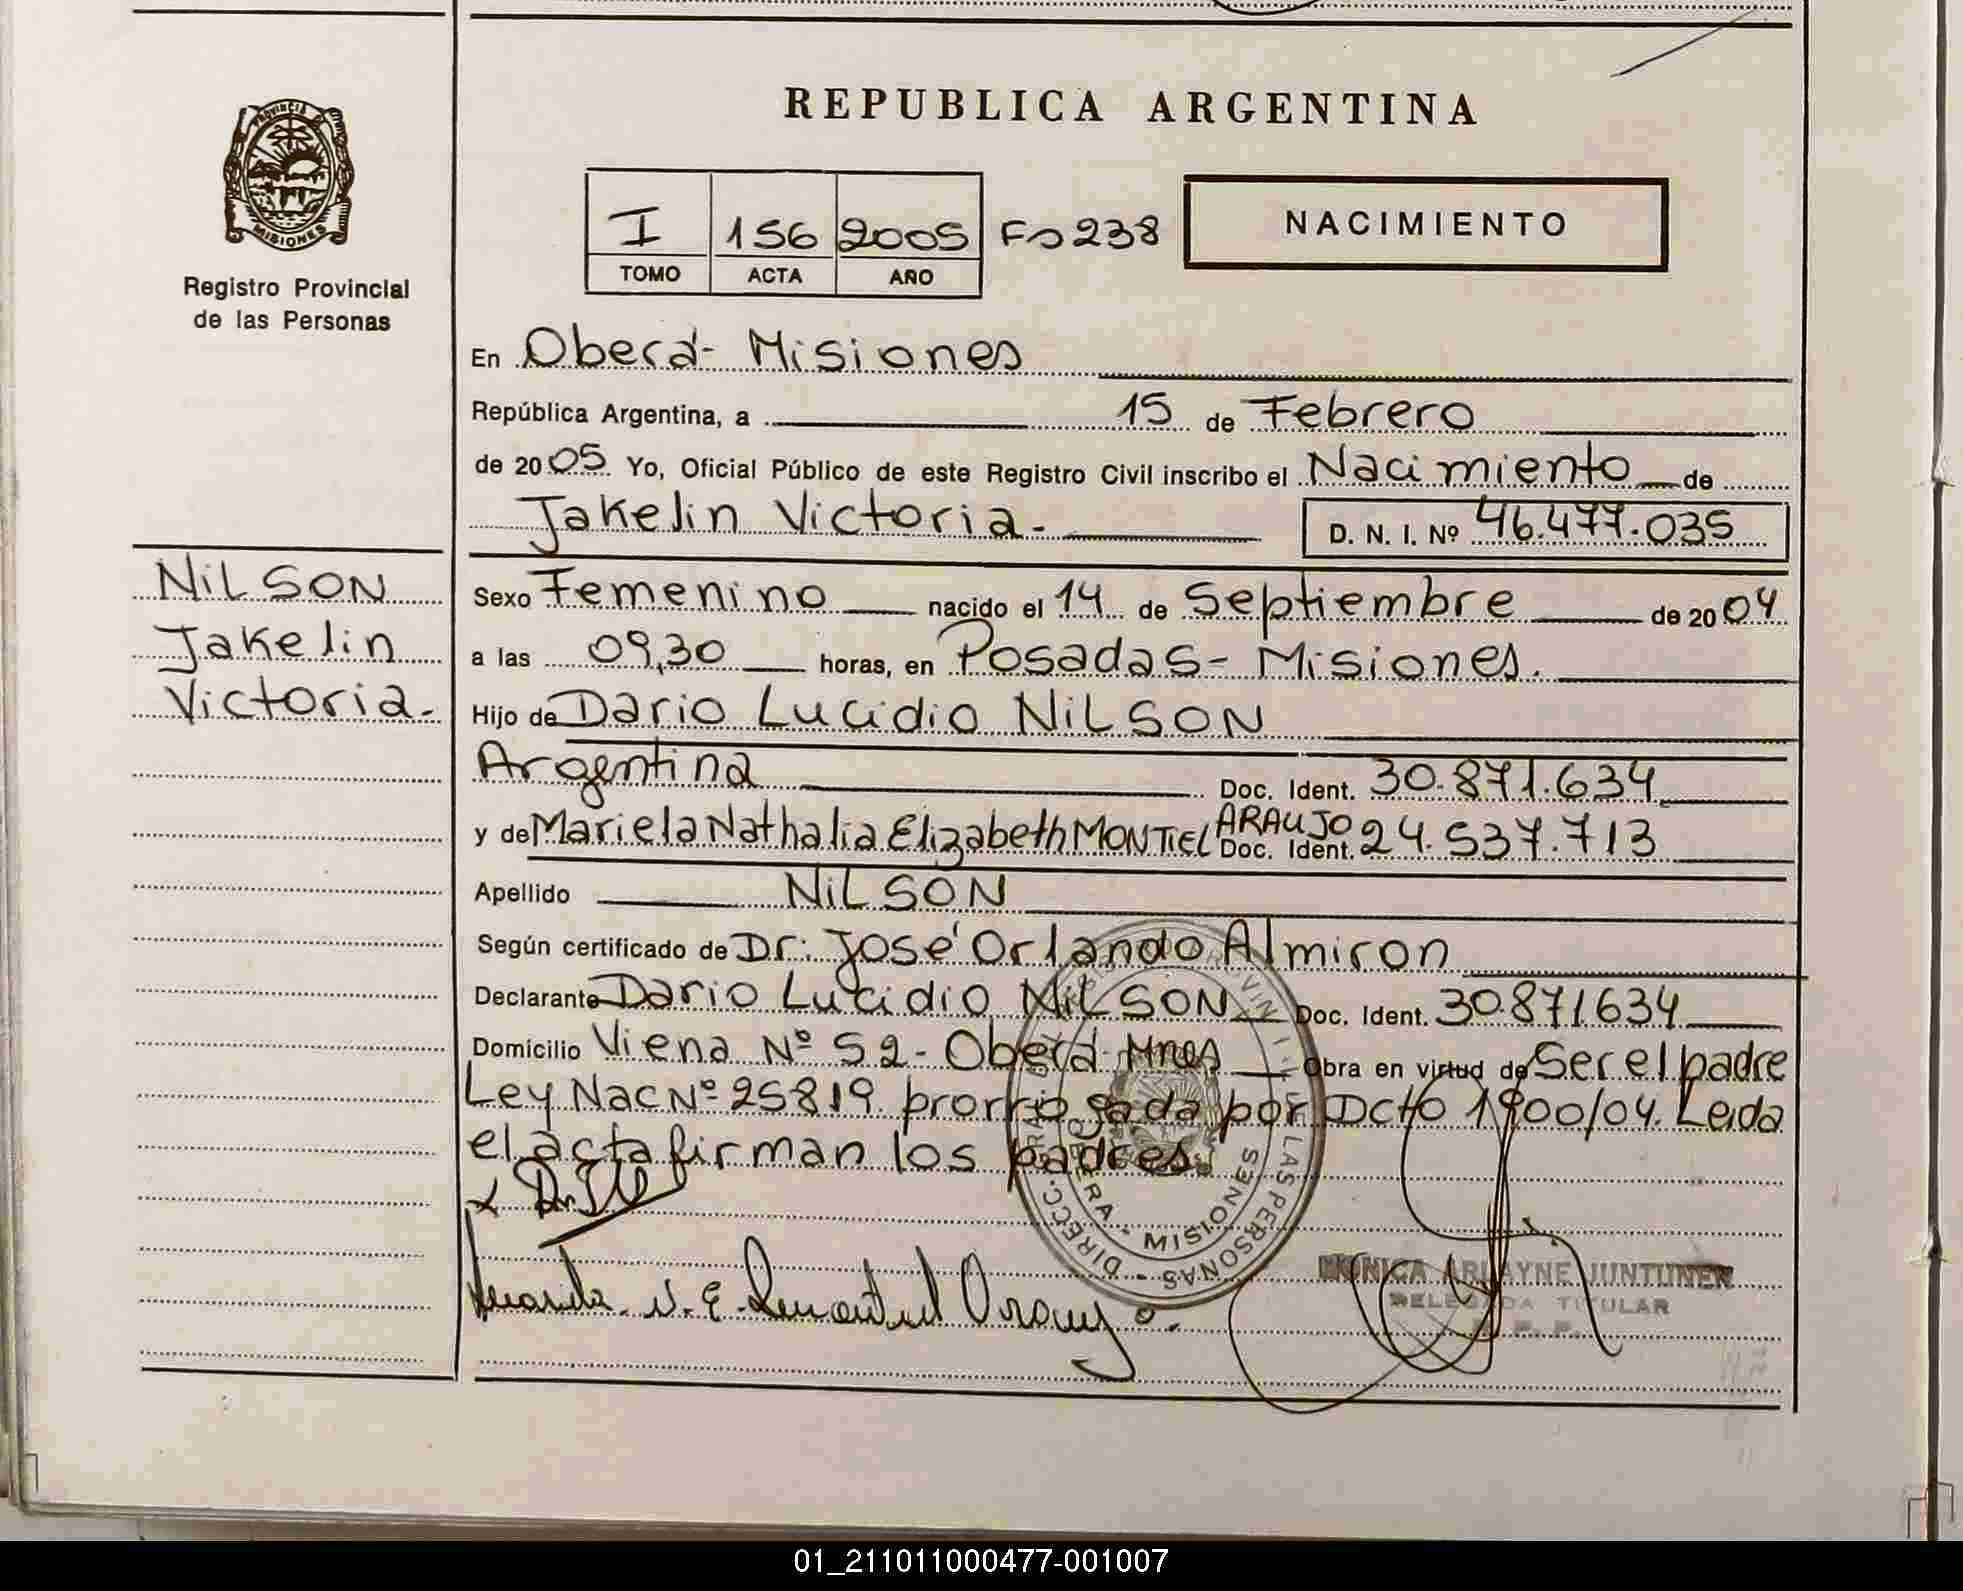 PROVINCIA
MISIONES
Registro Provincial
de las Personas
NiLSON
Jakelin
Victoria.-
REPUBLICA ARGENTINA
I 156 2005 Fo 238
TOMO ACTA AÑO
NACIMIENTO
En Oberá- Misiones
República Argentina, a 15 de Febrero
de 2005. Yo, Oficial Público de este Registro Civil inscribo el Nacimiento de
Jakelin Victoria.- D. N. I. Nº 46.477.035
Sexo Femenino nacido el 14 de Septiembre de 2004
a las 09,30 horas, en Posadas- Misiones.
Hijo de Dario Lucidio NiLSON
Argentina Doc. Ident. 30.871.634
y de Mariela Nathalia Elizabeth MONTIEL ARAUJO Doc. Ident. 24.537.713
Apellido NiLSON
Según certificado de Dr: José Orlando Almiron
Declarante Dario Lucidio NiLSON Doc. Ident. 30.871.634
Domicilio Viena Nº 52- Oberá- Mnes Obra en virtud de Ser el padre
Ley Nac Nº 25819 prorrogada por Dcto 1900/04. Leida
el acta firman los padres.
DIRECC. GRAL. DEL REGISTRO PROVINCIAL DE LAS PERSONAS
OBERA - MISIONES
MONICA ARLAYNE JUNTUNEN
DELEGADA TITULAR
R. P. P.
01_211011000477-001007